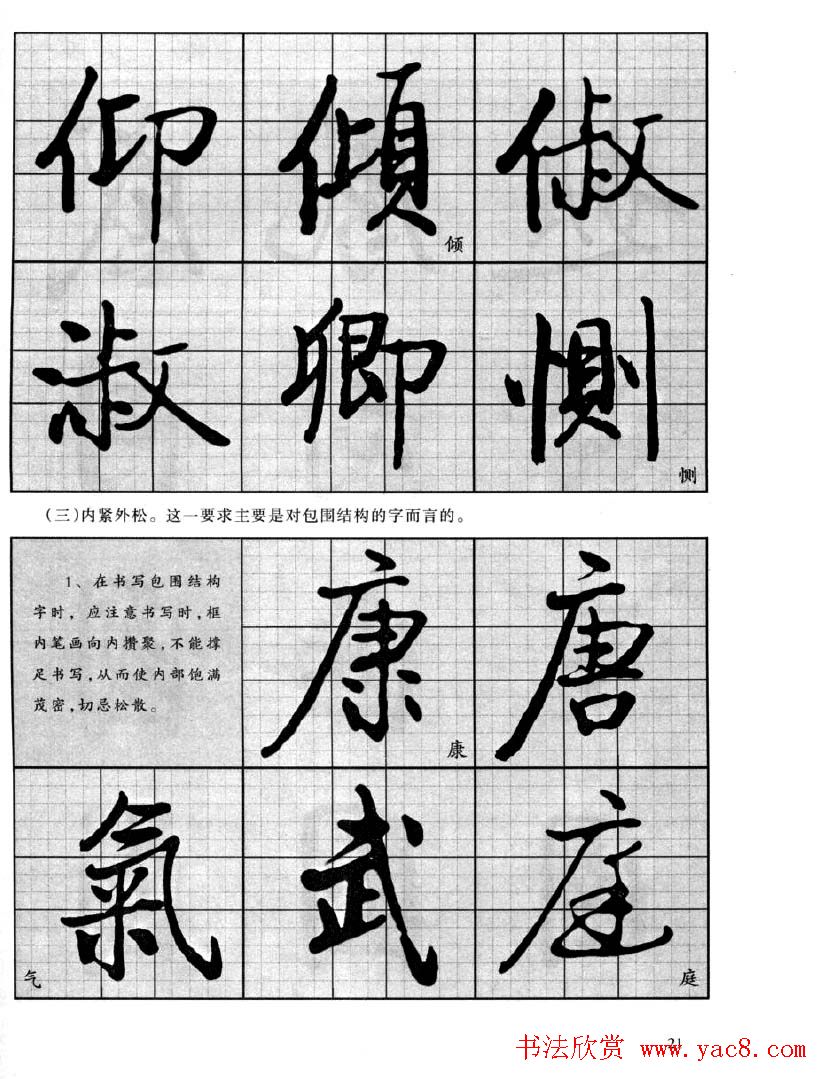 仰 傾 俶
倾
淑 卿 惻
恻
(三)内紧外松。这一要求主要是对包围结构的字而言的。
1、在书写包围结构
字时，应注意书写时,框
内笔画向内攒聚,不能撑
足书写,从而使内部饱满
茂密,切忌松散。
康 唐
康
氣 武 庭
气 庭
21
书法欣赏 www.yac8.com